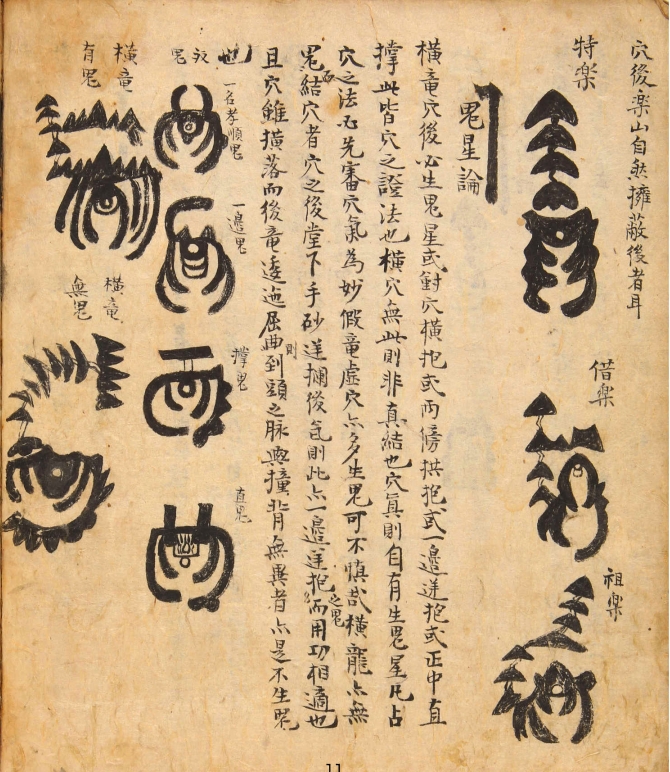 穴後楽山自然擁蔽後者耳
特楽
借楽
祖楽
鬼星論
横竜穴後必生鬼星或對穴横抱或兩傍拱抱或一邉逆抱或正中直
撑此皆穴之證法也横穴無此則非真結也穴真則自有生鬼星凡占
穴之法必先審穴氣為妙假竜虚穴亦多生鬼可不慎哉横龍亦無
鬼而結穴者穴之後堂下手砂逆攔後気則此亦一邉逆抱之鬼而用功相適也
且穴雖横落而後竜逶迤屈曲則到頭之脉與撞背無異者亦是不生鬼
也
双鬼
一名孝順鬼
一邉鬼
撑鬼
直鬼
横竜
有鬼
横竜
無鬼
11